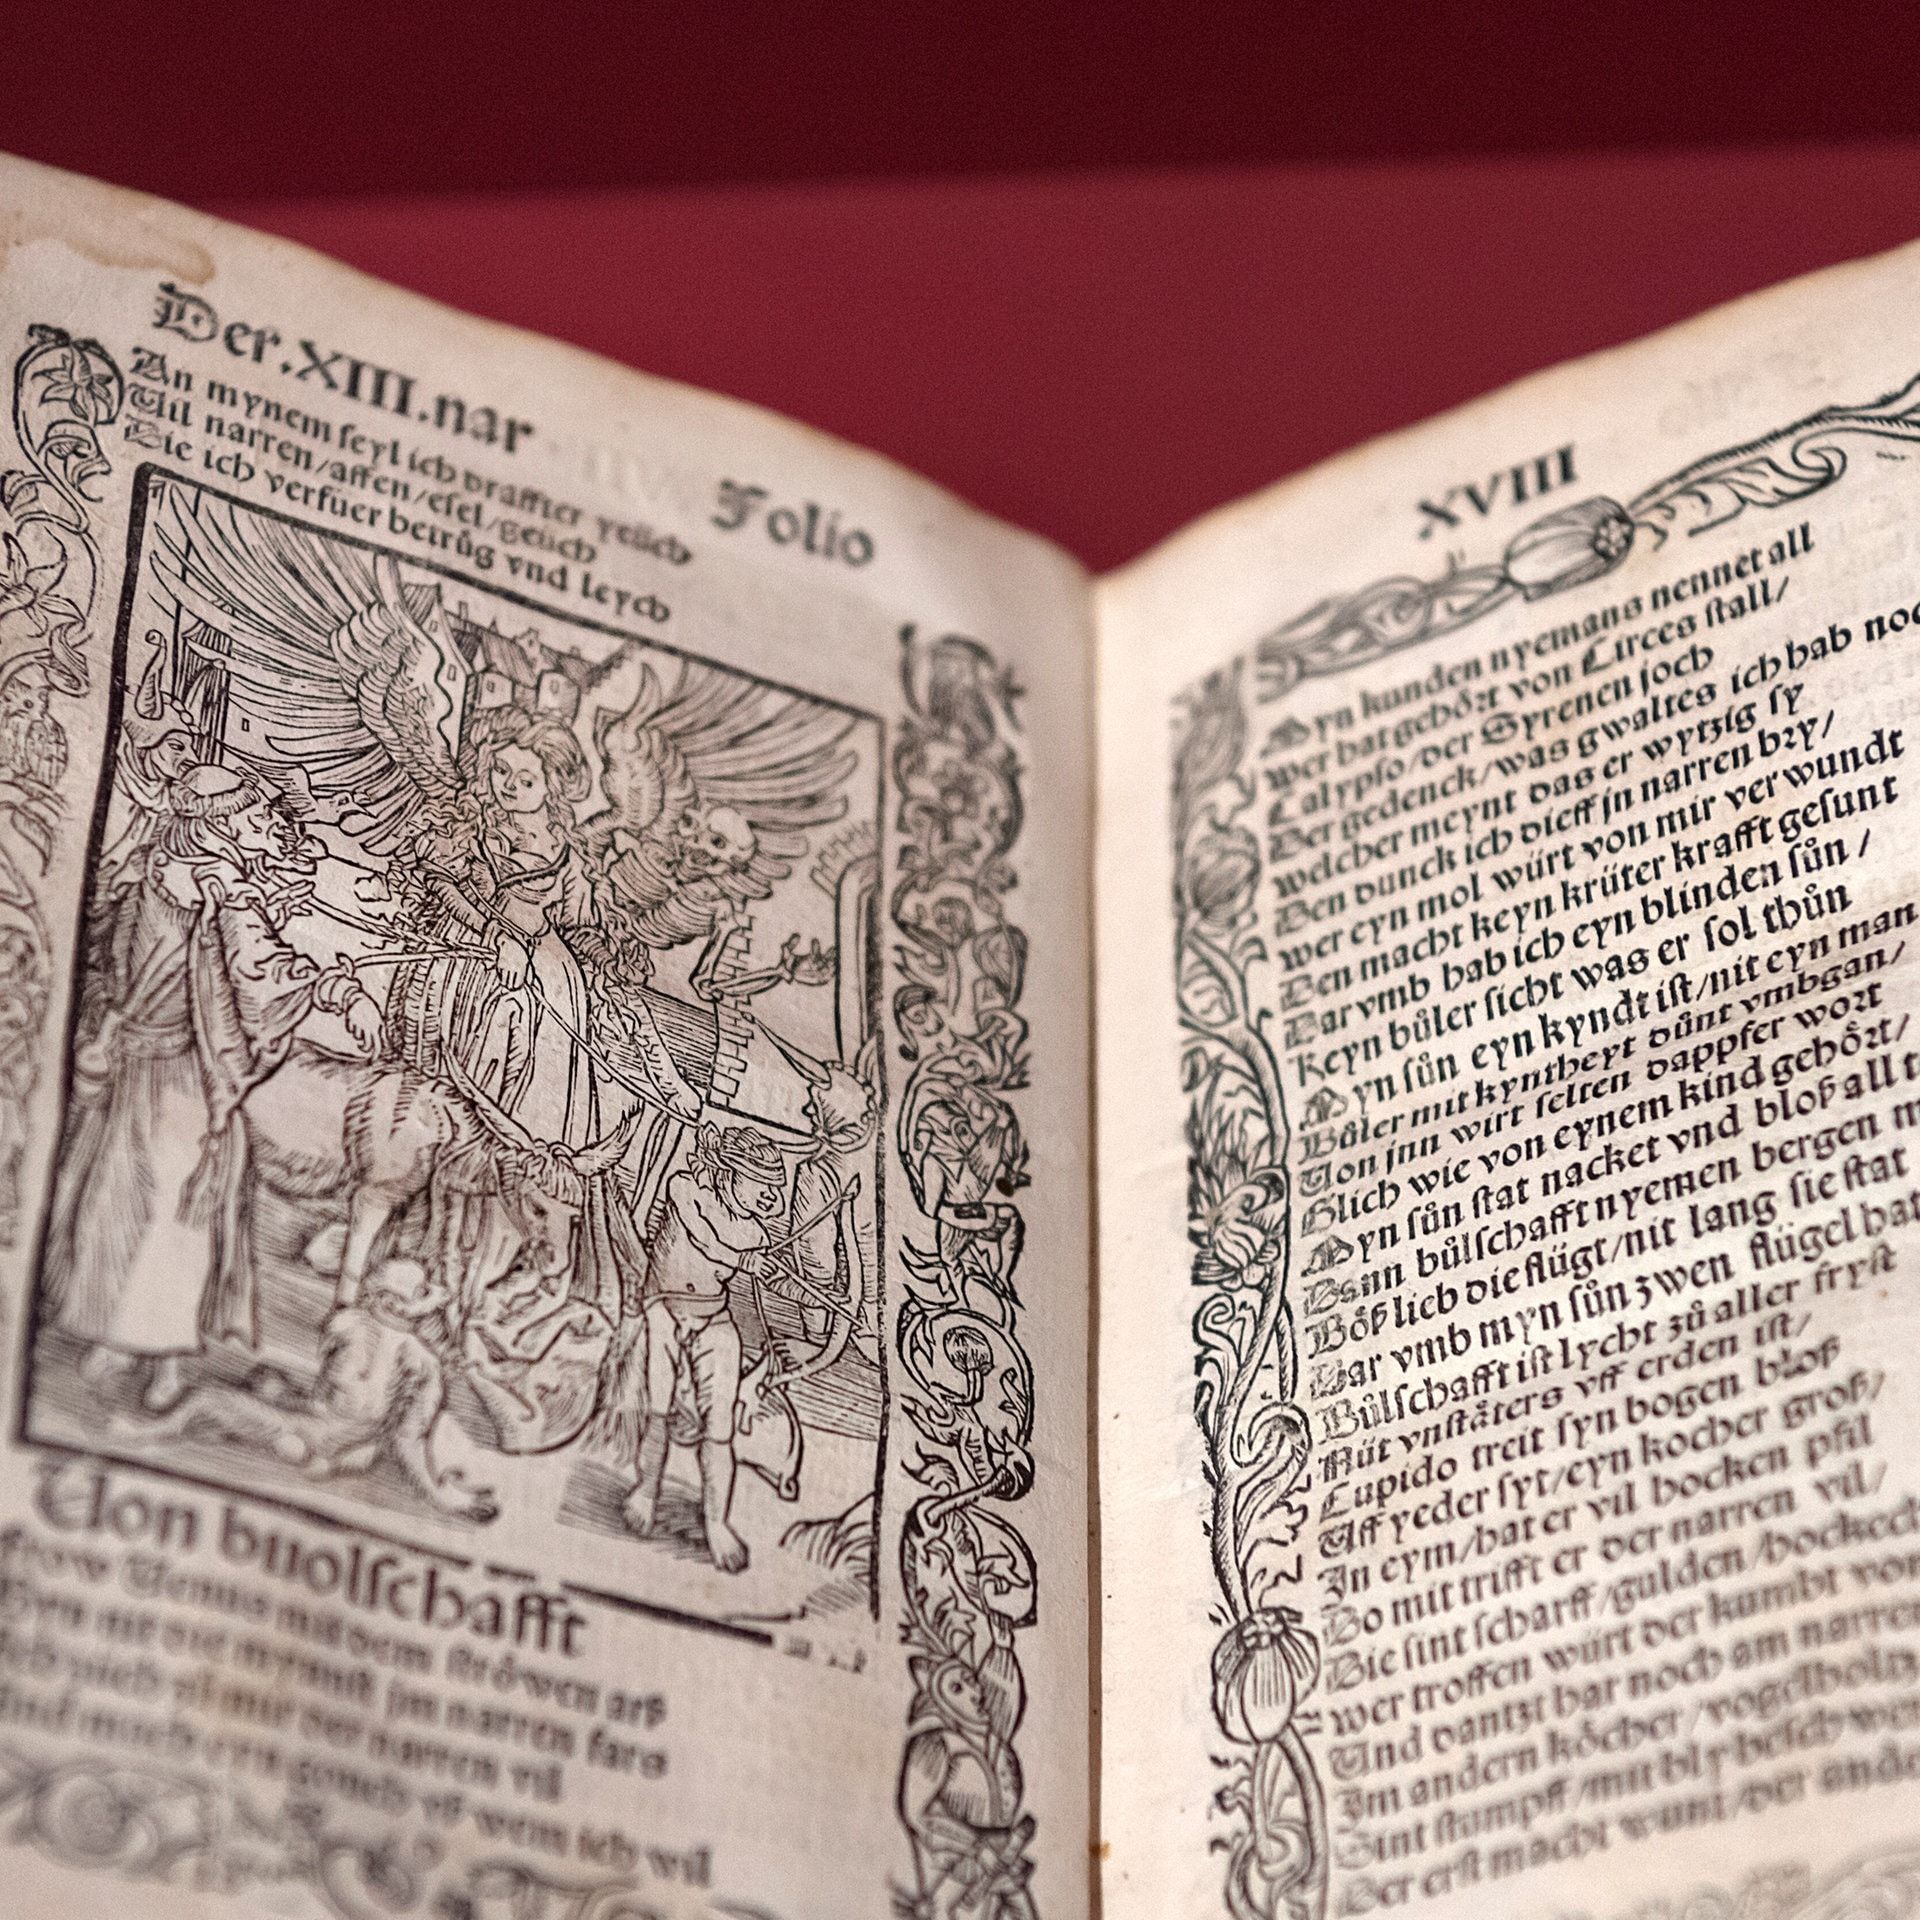 Der.XIII.nar
Folio
An mynem ſeyl ich draffter yeüch
Uil narren/affen/eſel/geüch
Die ich verfuer betrüg vnd leych
Uon buolſchafft
frow Uenus mit dem ſtröwen arß
Byn nit die mynnſt jm narren farß
Ich züch zů mir der narren vil
Und mach eyn gouch vß wem ich wil
XVIII
Myn kunden nyemans nennet all
wer hat gehört von Circes ſtall/
Calypſo/der Syrenen joch
Der gedenck/was gwaltes ich hab noch
welcher meynt das er wytzig ſy
Den dunck ich dieff jn narren bry/
wer eyn mol würt von mir verwundt
Den macht keyn krüter krafft geſunt
Dar vmb hab ich eyn blinden ſůn/
Keyn bůler ſicht was er ſol thůn
Myn ſůn eyn kyndt iſt/nit eyn man
Bůler mit kyntheyt důnt vmbgan/
Uon jnn wirt ſelten dappfer wort
Glich wie von eynem kind gehört/
Myn ſůn ſtat nacket vnd bloß all t
Dann bůlſchafft nyemen bergen m
Böß lieb die flügt/nit lang ſie ſtat
Dar vmb myn ſůn zwen flügel hat
Bůlſchafft iſt lycht zů aller fryſt
Nüt vnſtäters vff erden iſt/
Cupido treit ſyn bogen bloß
Uff yeder ſyt/eyn kocher groß/
In eym/hat er vil hocken pfil
Do mit trifft er der narren vil/
Die ſint ſcharff/gulden/hockecht
wer troffen würt der kumbt von
Und dantzt har noch am narren
Im andern köcher/vogelboltz
Sint ſtumpff/mit bly beſchwer
Der erſt macht wunt/der ande